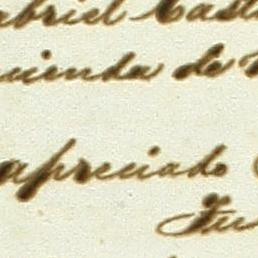 abriel Cast
cienda de
apreciado
Fu